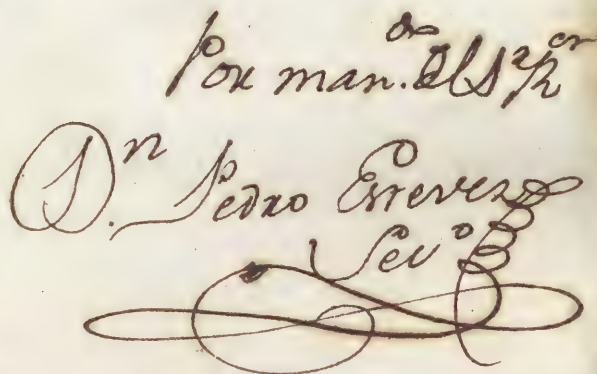 Por man.do del Sr Ror
D.n Pedro Estevez
Secº